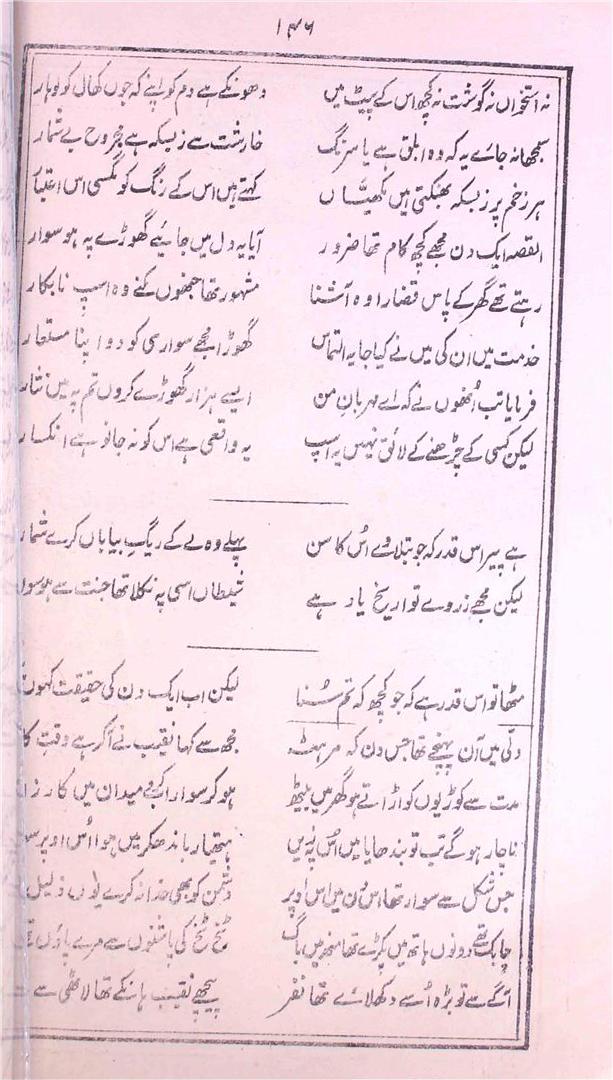 ۱۴۶
نہ استخواں نہ گوشت نہ کچھ اس کے پیٹ میں دھونکے ہے دم کو اپنے کہ جوں کھال کو لوہار
سمجھا نہ جائے یہ کہ وہ ابلق ہے یا سرنگ خارشت سے زبسکہ ہے مجروح بے شمار
ہر زخم پر زبسکہ بھنکتی ہیں مکھیاں کہتے ہیں اس کے رنگ کو مگسی اس اعتبار
القصہ ایک دن مجھے کچھ کام تھا ضرور آیا یہ دل میں جائیے گھوڑے پہ ہو سوار
رہتے تھے گھر کے پاس قضارا وہ آشنا مشہور تھا جنھوں کنے وہ اسپ نابکار
خدمت میں ان کی میں نے کیا جا یہ التماس گھوڑا مجھے سواری کو دو اپنا مستعار
فرمایا تب اُنھوں نے کہ اے مہربانِ من ایسے ہزار گھوڑے کروں تم پہ میں نثار
لیکن کسی کے چڑھنے کے لائق نہیں یہ اسپ یہ واقعی ہے اس کو نہ جانو ہے انکسار
ہے پیر اس قدر کہ جو بتلاوے اُس کا سن پہلے وہ لے کے ریگِ بیاباں کرے شمار
لیکن مجھے زروے تواریخ یاد ہے شیطاں اسی پہ نکلا تھا جنت سے ہو سوا
مٹھا تو اس قدر ہے کہ جو کچھ کہ تم سُنا لیکن اب ایک دن کی حقیقت کہوں
دلّی میں آن پہنچے تھا جس دن کہ مرہٹہ مجھ سے کہا نقیب نے آکر ہے وقتِ کا
مدت سے کوڑیوں کو اڑاتے ہو گھر میں بیٹھ ہو کر سوار اب میدان میں کارزا
ناچار ہو کے تب تو بندھایا میں اُس پہ زیں ہتھیار باندھ کر میں ہوا اُس اوپر سو
جس شکل سے سوار تھا اس دن میں اس اوپر دشمن کو بھی خدا نہ کرے یوں ذلیل
چابک تھے دونوں ہاتھ میں پکڑے تھا منھ میں باگ ٹخ ٹخ کی پاشنوں سے مرے پاؤں
آگے سے توبڑہ اُسے دکھلائے تھا نفر پیچھے نقیب ہانکے تھا لاٹھی سے